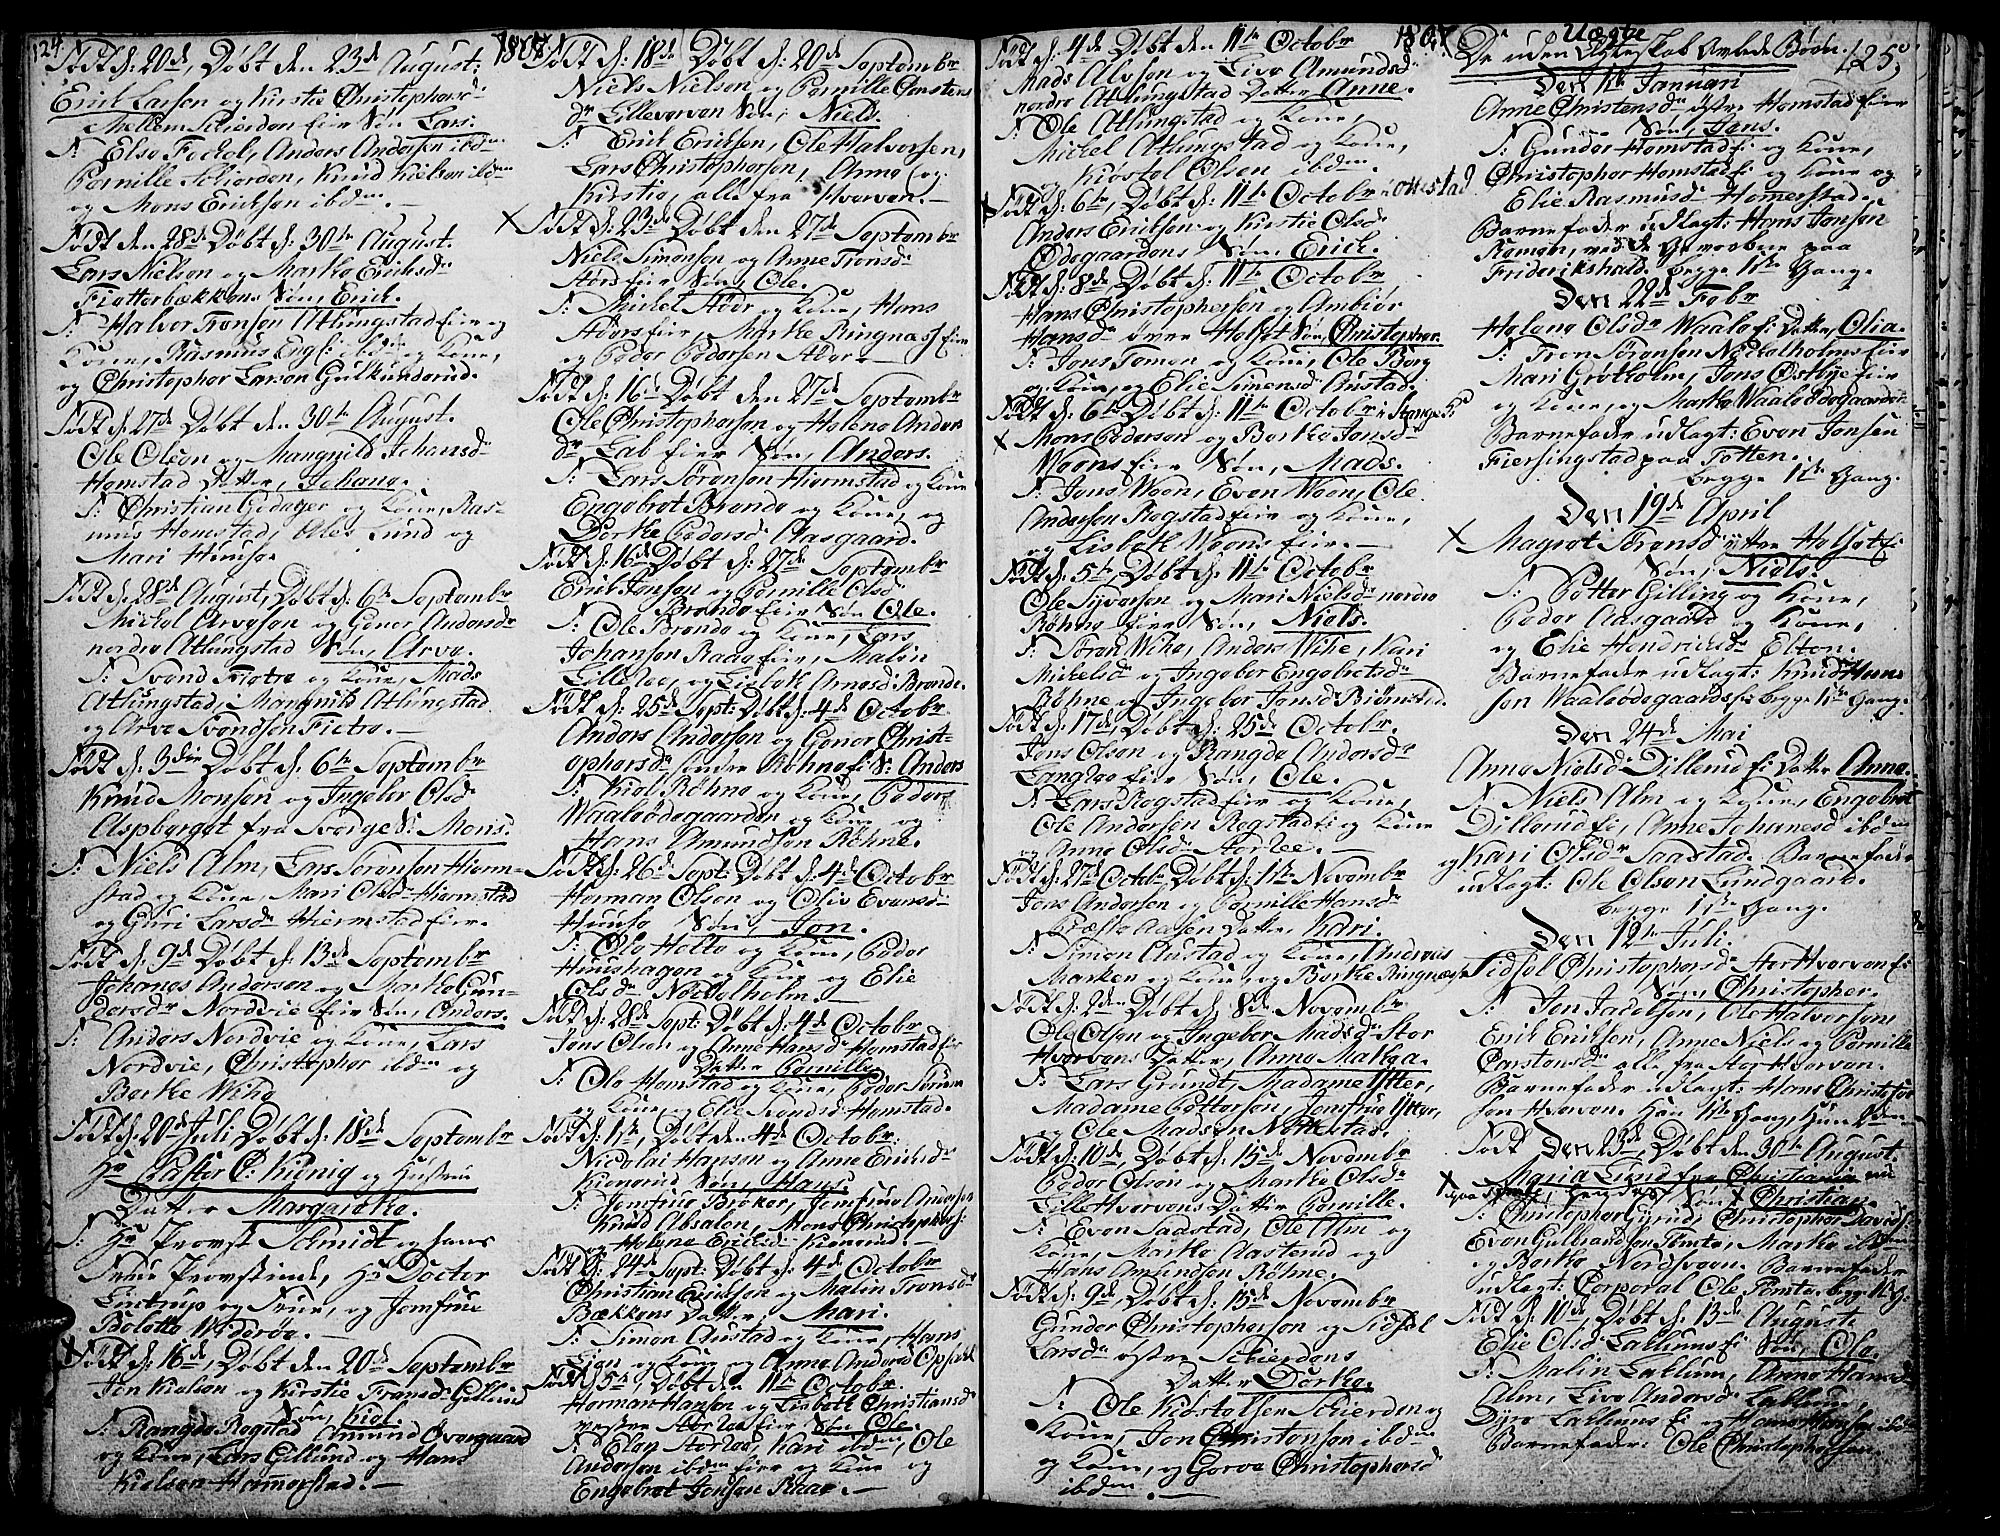 124
1807
Født d: 20de, Døbt den 23de August.
Erich Larsen og Kirstie Christophersdr
Mellem Schierden eier Søn, Lars.
Anders Andersen ibdm
Pernille Schierden, Knud Kielsen ibdm
og Mons Ericksen ibdm. —
Født den 28de Døbt d: 30te August.
Lars Nielsen og Marthe Ericksdr
Søn, Erich.
F: Halvor Tronsen Atlungstad eier og
Kone, Rasmus Engl: ibdm og Kone,
og Christopher Larsen Gulkunderud.
Født d: 27de Døbt d: 30te August.
Ole Olson og Mangnild Johansdr
Homstad Datter, Johane.
F: Christian Gidager og Kone, Ras-
mus Homstad, Ole Lund og
Mari Hunsøe
Født d: 28de August, Døbt d: 6te Septembr
Michel Arvesen og Goner Andersdr
nordre Atlungstad Søn, Arve.
F: Svend Fietre og Kone, Mads
Atlungstad, Mangnild Atlungstad
og Arve Svendsen Fietre. —
Født d: 3die Døbt d: 6te Septembr
Knud Monsen og Ingebor Olsdr
Aspberget fra Sverge S: Mons.
F: Niels Alm, Lars Sørensen Hierm-
stad og Kone, Mari Olsdr Hiermstad
og Guri Larsdr Hiermstad eier.
Født d: 9de Døbt d: 13de Septembr
Johanes Andersen og Marthe Gun-
dersdr Nordvie eier Søn, Anders.
F: Anders Nordvie og Kone, Lars
Nordvie, Christopher ibdm og
Berthe Wihe
Født d: 20de Juli, Døbt d: 18de Septembr
Hr Pastor C: Kiønig og Hustrue
Datter Margarethe.
F: Hr Provst Schmidt og hans
Frue Provstinde, Hr Doctor
Lintrup og Frue, og Jomfrue
Bolette Widerøe. —
Født d: 16de, Døbt den 20de Septembr
Jon Kielsen og Kirstie Tronsdr Gillund
Søn, Kiel.
F: Rangde Rogstad, Amund Overgaard
og Kone, Lars Gillund og Hans
Kielsen Hemmerstad. —
Født d: 18de, Døbt d: 20de Septembr
Niels Nielsen og Pernille Carstens
dr Lillehverven Søn, Niels.
F: Erick Ericksen, Ole Halvorsen,
Lars Christophersen, Anne og
Kirstie, alle fra Hverven. —
X Født d: 23de Døbt den 27de Septembr
Niels Simonsen og Anne Tronsdr
eier Søn, Ole.
F: Michel og Kone, Hans
eier, Marthe Ringnæs eier
og Peder Pedersen
Født d: 16de Døbt den 27de Septembr
Ole Christophersen og Helene Anders
dr Lab eier Søn, Anders.
F: Lars Sørensen Hiermstad og Kone
Engebret Brende og Kone, og
Dorthe Pedersdr Aasgaard.
Født d: 16de Døbt d: 27de Septembr
Erick Jonsen og Pernille Olsdr
Brende eier Søn Ole.
F: Ole Brende og Kone, Lars
Johansen Raae eier, Malin
Lilleloe, og Lisbeth Arnesdr Brende.
Født d: 25de Sept: Døbt d: 4de Octobr
Anders Andersen og Goner Christ-
ophersdr søndre Røhne ei S: Anders
F: Kiel Røhne og Kone, Peder
Waaleødegaarden og Kone og
Hans Amundsen Røhne.
Født d: 26de Sept: Døbt d: 4de Octobr
Herman Olson og Oliv Evensdr
Hunsø Søn, Jon.
F: Ole Holte og Kone, Peder
Huushagen og Kone og Elie
Olsdr Nøttelholm. —
Født d: 28de Sept: Døbt d: 4de Octobr
Jens Olson og Anne Hansdr Homstad eier
Datter Pernille
F: Ole Homstad og Kone, Peder Sørum
og Kone, og Elie Svendsdr Homstad.
Født d: 1ste, Døbt den 4de Octobr:
Nicolai Hansen og Anne Ericksdr
Kiønerud Søn, Hans.
F: Jomfrue Brøker, Jomfrue Andersen
Knud Absalon, Mons Christophers:
og Helene Ericksdr Kiønerud. —
Født d: 24de Sept: Døbt d: 4de Octobr
Christian Ericksen og Malin Tronsdr
Bækkens Datter, Mari.
F: Simon Austad og Kone, Hans
Lign og Kone og Anne Andersdr Opsal
Født d: 5te, Døbt den 11te Octobr.
Herman Hansen og Lisbeth Christiansdr
vestre Storloe eier Søn Ole.
F: Elen Storloe, Kari ibdm, Ole
Andersen ibdm eier og Kone og
Engebret Jonsen Raae. —
1807
Født d: 4de Døbt den 11te Octobr
Mads Alvsen og Live Amundsdr
nordre Atlungstad Datter Anne.
F: Ole Atlungstad og Kone,
Michel Atlungstad og Kone,
Kiøstel Olsen ibdm
X Født d: 6te, Døbt d: 11te Octobr i Ottestad
Anders Ericksen og Kirstie Olsdr
Ødegaardens Søn, Erich.
Født d: 8de, Døbt d: 11te Octobr
Hans Christophersen og Ambiør
Hansdr øvre Holset Søn, Christopher.
F: Jens Tomen og Kone, Ole Berg
og Kone, og Elie Simensdr Austad.
Født d: 6te Døbt d: 11te Octobr i Stange K:
X Mons Pedersen og Berthe Jonsdr
Woens eier Søn, Mads.
F: Jens Woen, Even Woen, Ole
Andersen Rogstad eier og Kone,
og Lisbeth Woens eier. —
Født d: 5te, Døbt d: 11te Octobr
Ole Syversen og Mari Nielsdr nordre
Røhne eier Søn, Niels.
F: Søren Wihe, Anders Wihe, Kari
Michelsdr og Ingebor Engebretsdr
Røhne og Ingebor Jonsdr Biørnstad.
Født d: 17de, Døbt d: 25de Octobr
Jens Olson og Rangde Andersdr
Langloe eier Søn, Ole.
F: Lars Rogstad eier og Kone,
Ole Andersen Rogstad ei og Kone
og Anne Olsdr Storloe. —
Født d: 27de Octobr, Døbt d: 1ste Novembr
Jens Andersen og Pernille Hansdr
Præste Aasen Datter, Kari.
F: Simon Austad og Kone, Andreas
Marken og Kone, og Berthe Ringnæs
Født d: 2den Døbt d: 8de Novembr
Ole Olson og Ingebor Madsdr Stor
Hvervens Datter, Anne Mathea.
F: Lars Grundt, Madame Ytter,
Madame Pettersen, Jomfrue Ytter,
og Ole Madsen Nøttestad.
Født d: 10de, Døbt d: 15de Novembr
Peder Olson og Marthe Olsdr
Lille Hvervens Datter Pernille.
F: Even Saastad, Ole Alm og
Kone, Marthe Aasterud og
Hans Amundsen Røhne.
Født d: 9de, Døbt d: 15de Novembr
Gunder Christophersen og Sidsel
Larsdr østre Schierdens
Datter Dorthe.
F: Ole Kiøstelsen Schierden og
Kone, Jon Christensen ibdm
og Kone, og Gorve Christophersdr
ibdm. —
125.
Uægte
De uden Ægteskab Avlede Børn.
Den 1te Januari
Anne Christensdr østre Homstad eier
Søn, Jens.
F: Gunder Homstad ei og Kone,
Christopher Homstad ei og Kone og
Elie Rasmusdr Hommerstad.
Barnefader udlagt: Hans Jonsen
Ramen, ved de Geworbne paa
Friderikshald. begge 1ste Gang.
Den 22de Febr
Helene Olsdr Waale ei: Datter, Olia.
F: Tron Sørensen Nøttelholms eier
Mari Grøtholm, Jens Østbye eier
og Kone, og Marthe Waaleødegaarden
Barnefader udlagt: Even Jonsen
Fiersingstad paa Totten.
begge 1ste Gang.
Den 19de April
X Magret Tronsdr yttre Holset ei
Søn, Niels.
F: Petter Gilling og Kone,
Peder Aasgaard og Kone,
og Elie Hendricksdr Elton.
Barnefader udlagt: Knud Hans
sen Waaleødegaards ei: begge 1ste Gang.
Den 24de Mai
Anne Nielsdr Dillerud ei Datter Anne.
F: Niels Alm og Kone, Engebret
Dillerud ei, Anne Johanesdr ibdm
og Kari Olsdr Saastad. Barnefader
udlagt: Ole Olson Lundgaard.
begge 1ste Gang.
Den 12te Juli.
Sidsel Christophersdr Stor Hverven ei
Søn, Christopher.
F: Jon Jacobsen, Ole Halvorsen,
Erick Ericksen, Anne Niels og Pernille
Carstensdr alle fra Stor Hverven.
Barnefader udlagt: Hans Christofer
sen Hverven. Han 1ste Gang, Hun 2den.
Født Den 23de, Døbt den 30te August.
X Maria Lund fra Christiania
Søn X Christian
F: Christopher Gyrud, Christopher Davids:
Even Gulbrandsen Tomte, Marthe ibdm
og Berthe Nordsveen. Barnefader
udlagt: Corporal Ole Tomte. begge 1te G:
Født d: 10de, Døbt d: 13de August
Elie Olsdr Laklums ei Søn, Ole.
F: Malin Laklum, Anne Hansdr
Alm, Live Andersdr Laklum,
Syver Laklums ei og Hans Hansen ibdm
Barnefader: Ole Christophersen.